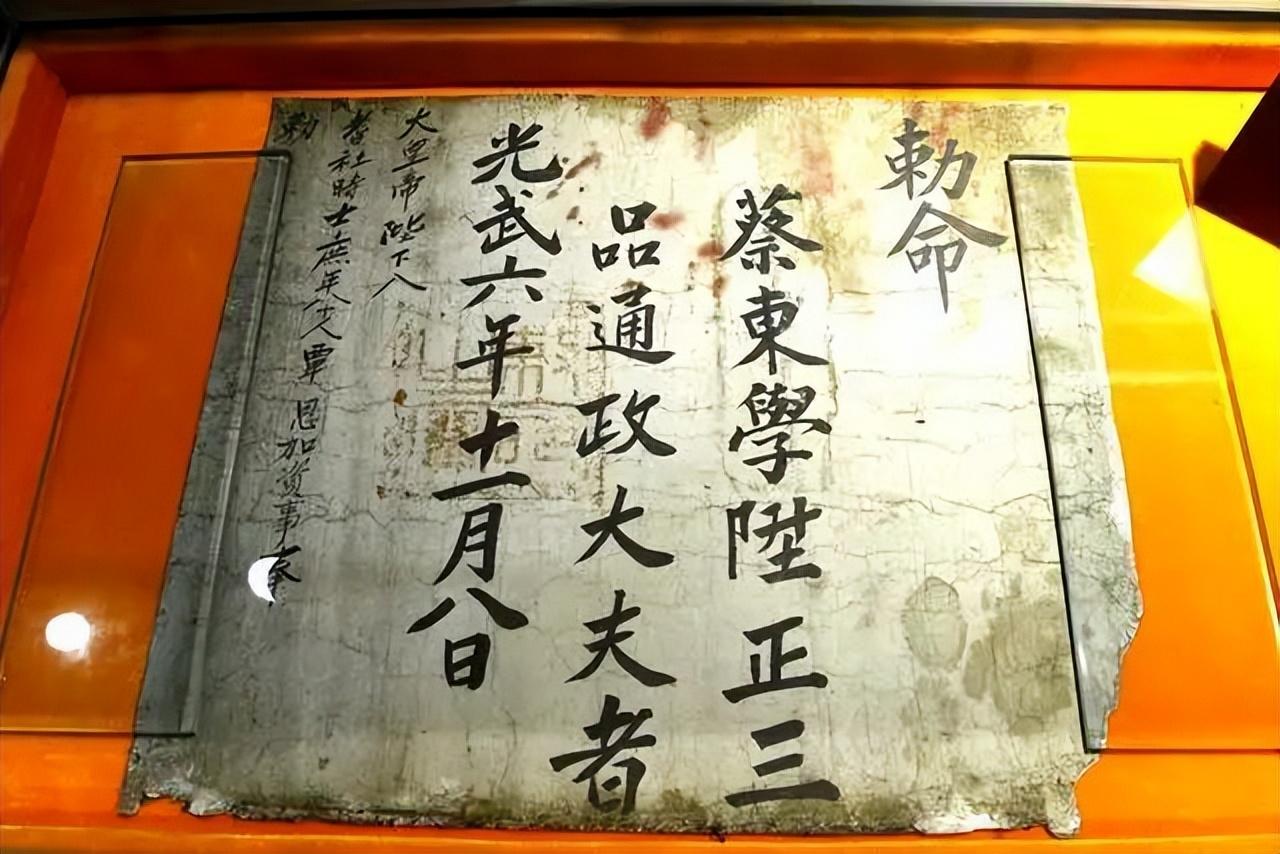 勅命
蔡東學陞正三
品通政大夫者
光武六年十一月八日
大皇帝陛下八
耆社時士庶年八十人覃 恩加資事奉
勅